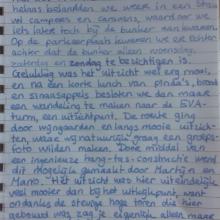 helaas belandden we weer in een stau
vol campers en caravans, waardoor we
iets later toch bij de bunker aan kwamen.
Op de parkeerplaats kwamen we er echter
achter dat de bunker alleen woensdag,
zaterdag en zondag te bezichtigen is.
Gelukkig was het uitzicht wel erg mooi,
en na een korte lunch van pinda's, brood
en sinaasappels besloten we dan maar
een wandeling te maken naar de EVA-
turm, een uitzichtpunt. De route ging
door wijngaarden en langs mooie uitzich-
ten, waar wij natuurlijk maar een groeps-
foto wilden maken. Door middel van
een ingenieuze hang-tas-constructie werd
dit mogelijk gemaakt door Martijn en
Marn. Het uitzicht was hier uiteindelijk
veel mooier dan bij het uitkijkpunt, want
ondanks de steun hoge toren die hier
gebouwd was, zag je eigenlijk alleen maar